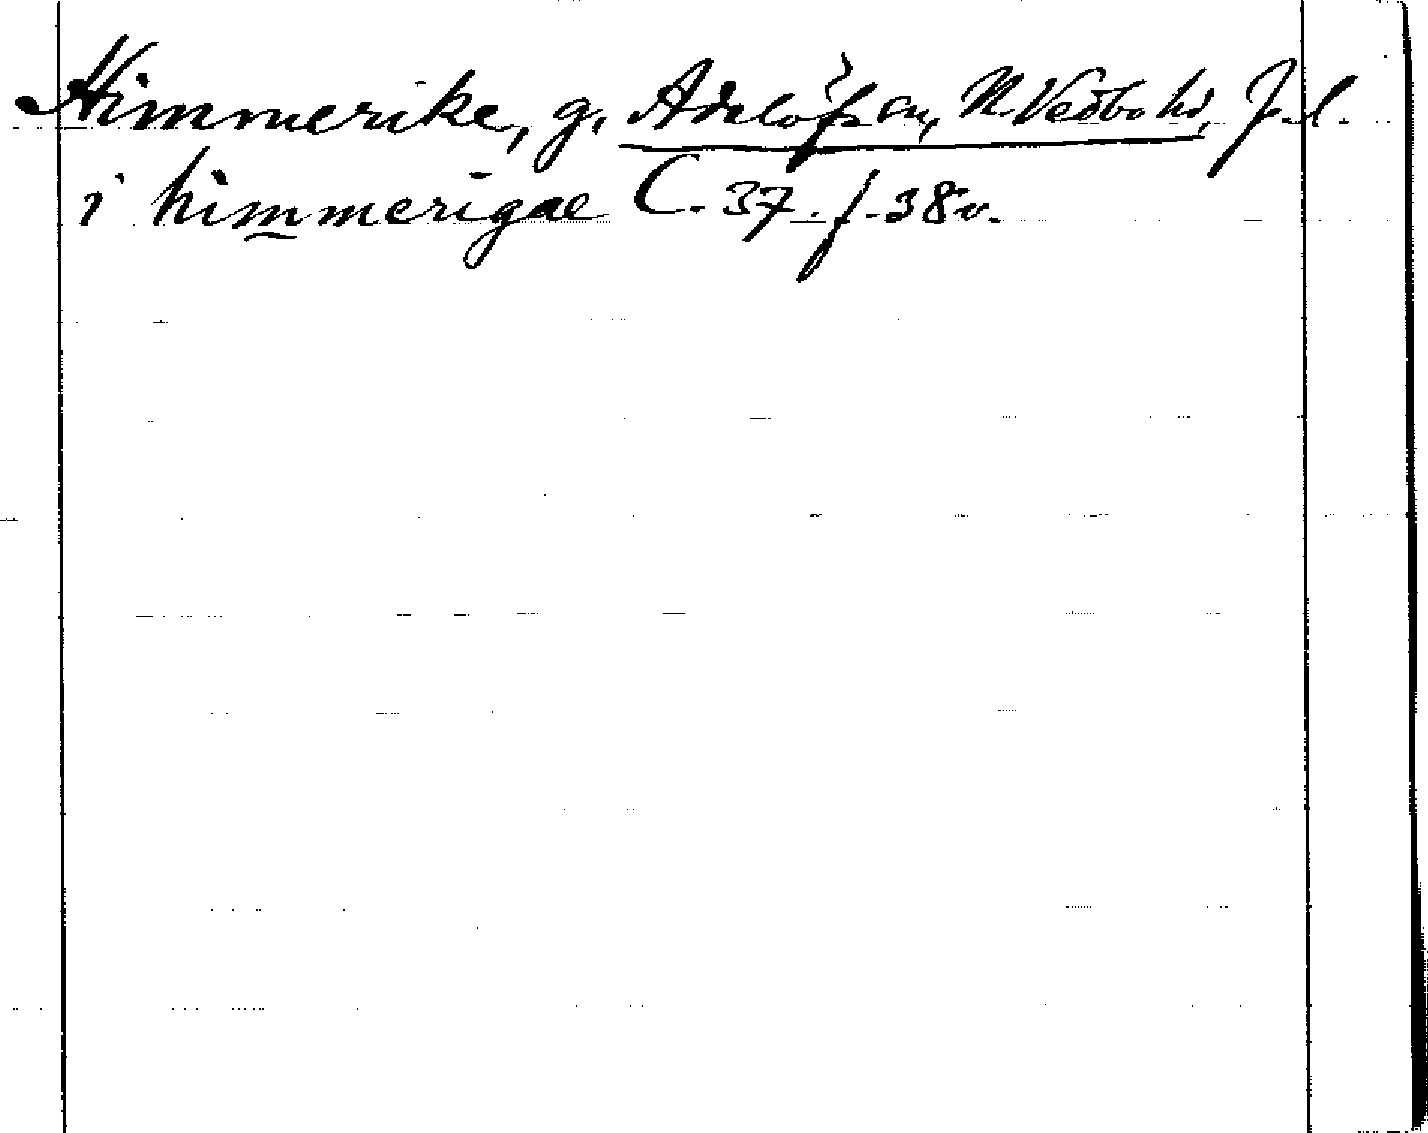 Himmerike, g, Adelöfs sn, N. Vedbo hd, J. l.
i himmerigae C. 37. f. 38v.